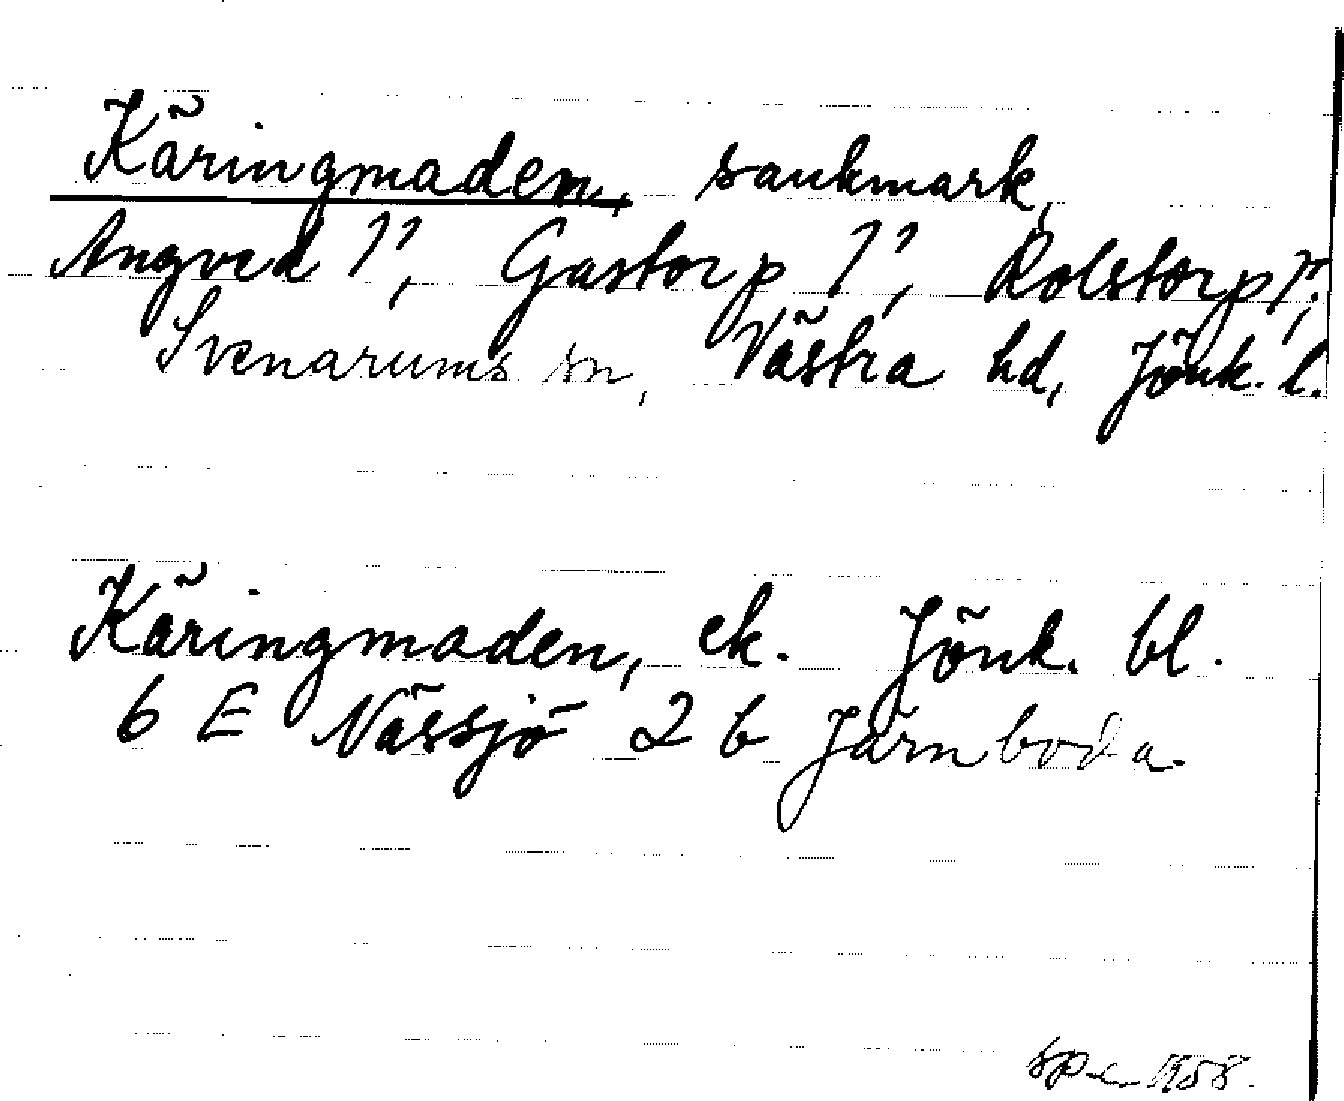 Käringmaden, sankmark,
Angved 1², Gastorp 1², Rolstorp 1²,
Svenarums sn, Västra hd, Jönk. l.
Käringmaden, ek. Jönk. bl.
6 E Nässjö 2 b Järnboda.
1958.